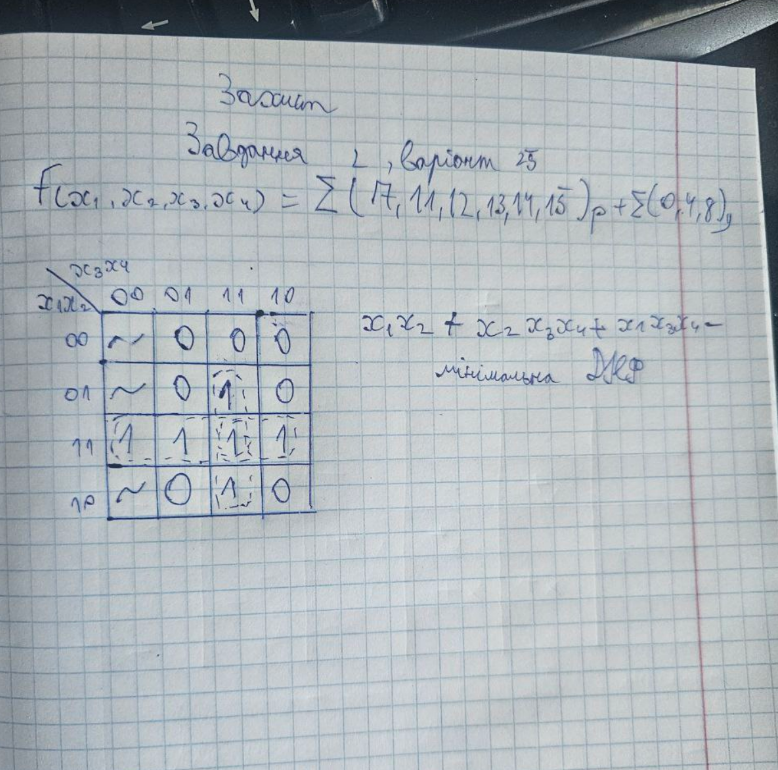 Захист
Завдання 2, варіант 25
f(x₁,x₂,x₃,x₄) = Σ(17,11,12,13,14,15)ₚ + Σ(0,4,8)
x₃x₄
x₁x₂ 00 01 11 10
00 ~ 0 0 0
01 ~ 0 1 0
11 1 1 1 1
10 ~ 0 1 0
x₁x₂ + x₂x₃x₄ + x₁x₃x₄ –
мінімальна ДНФ